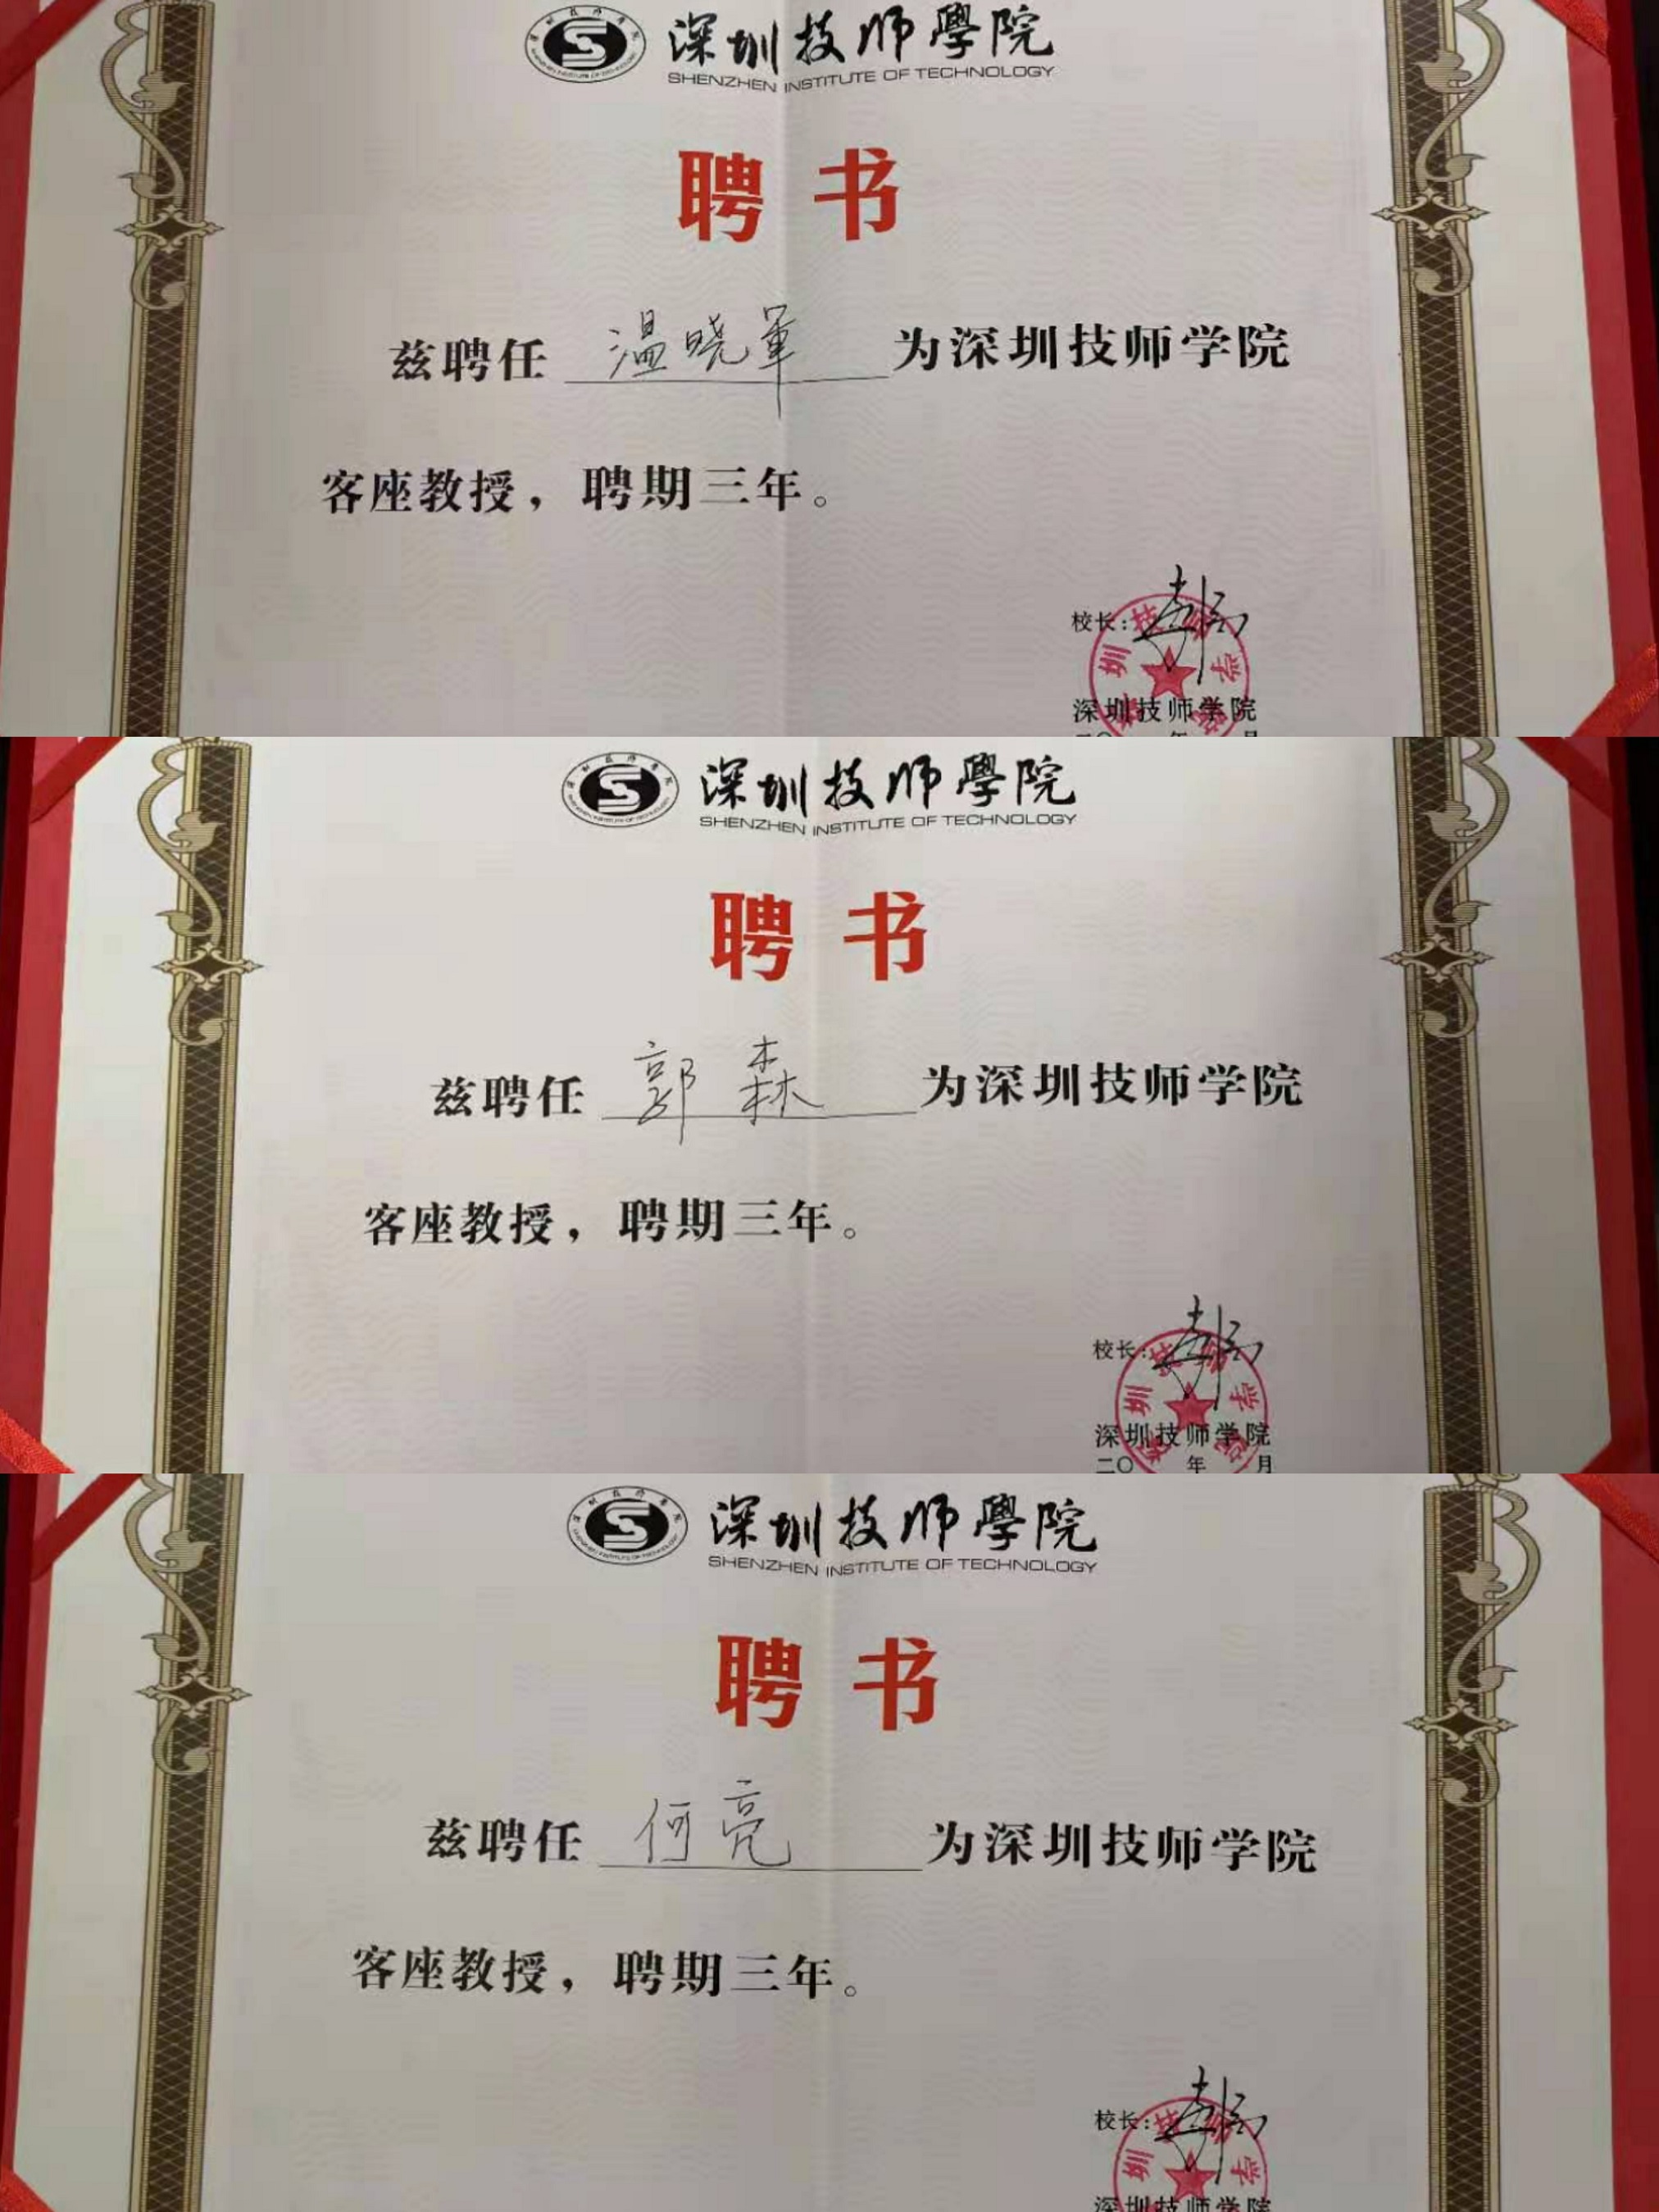 深圳技师學院
SHENZHEN INSTITUTE OF TECHNOLOGY
聘书
兹聘任 温晓军 为深圳技师学院
客座教授，聘期三年。
校长：
深圳技师学院
深圳技师學院
SHENZHEN INSTITUTE OF TECHNOLOGY
聘书
兹聘任 郭森 为深圳技师学院
客座教授，聘期三年。
校长：
深圳技师学院
二〇 年 月
深圳技师學院
SHENZHEN INSTITUTE OF TECHNOLOGY
聘书
兹聘任 何亮 为深圳技师学院
客座教授，聘期三年。
校长：
深圳技师学院